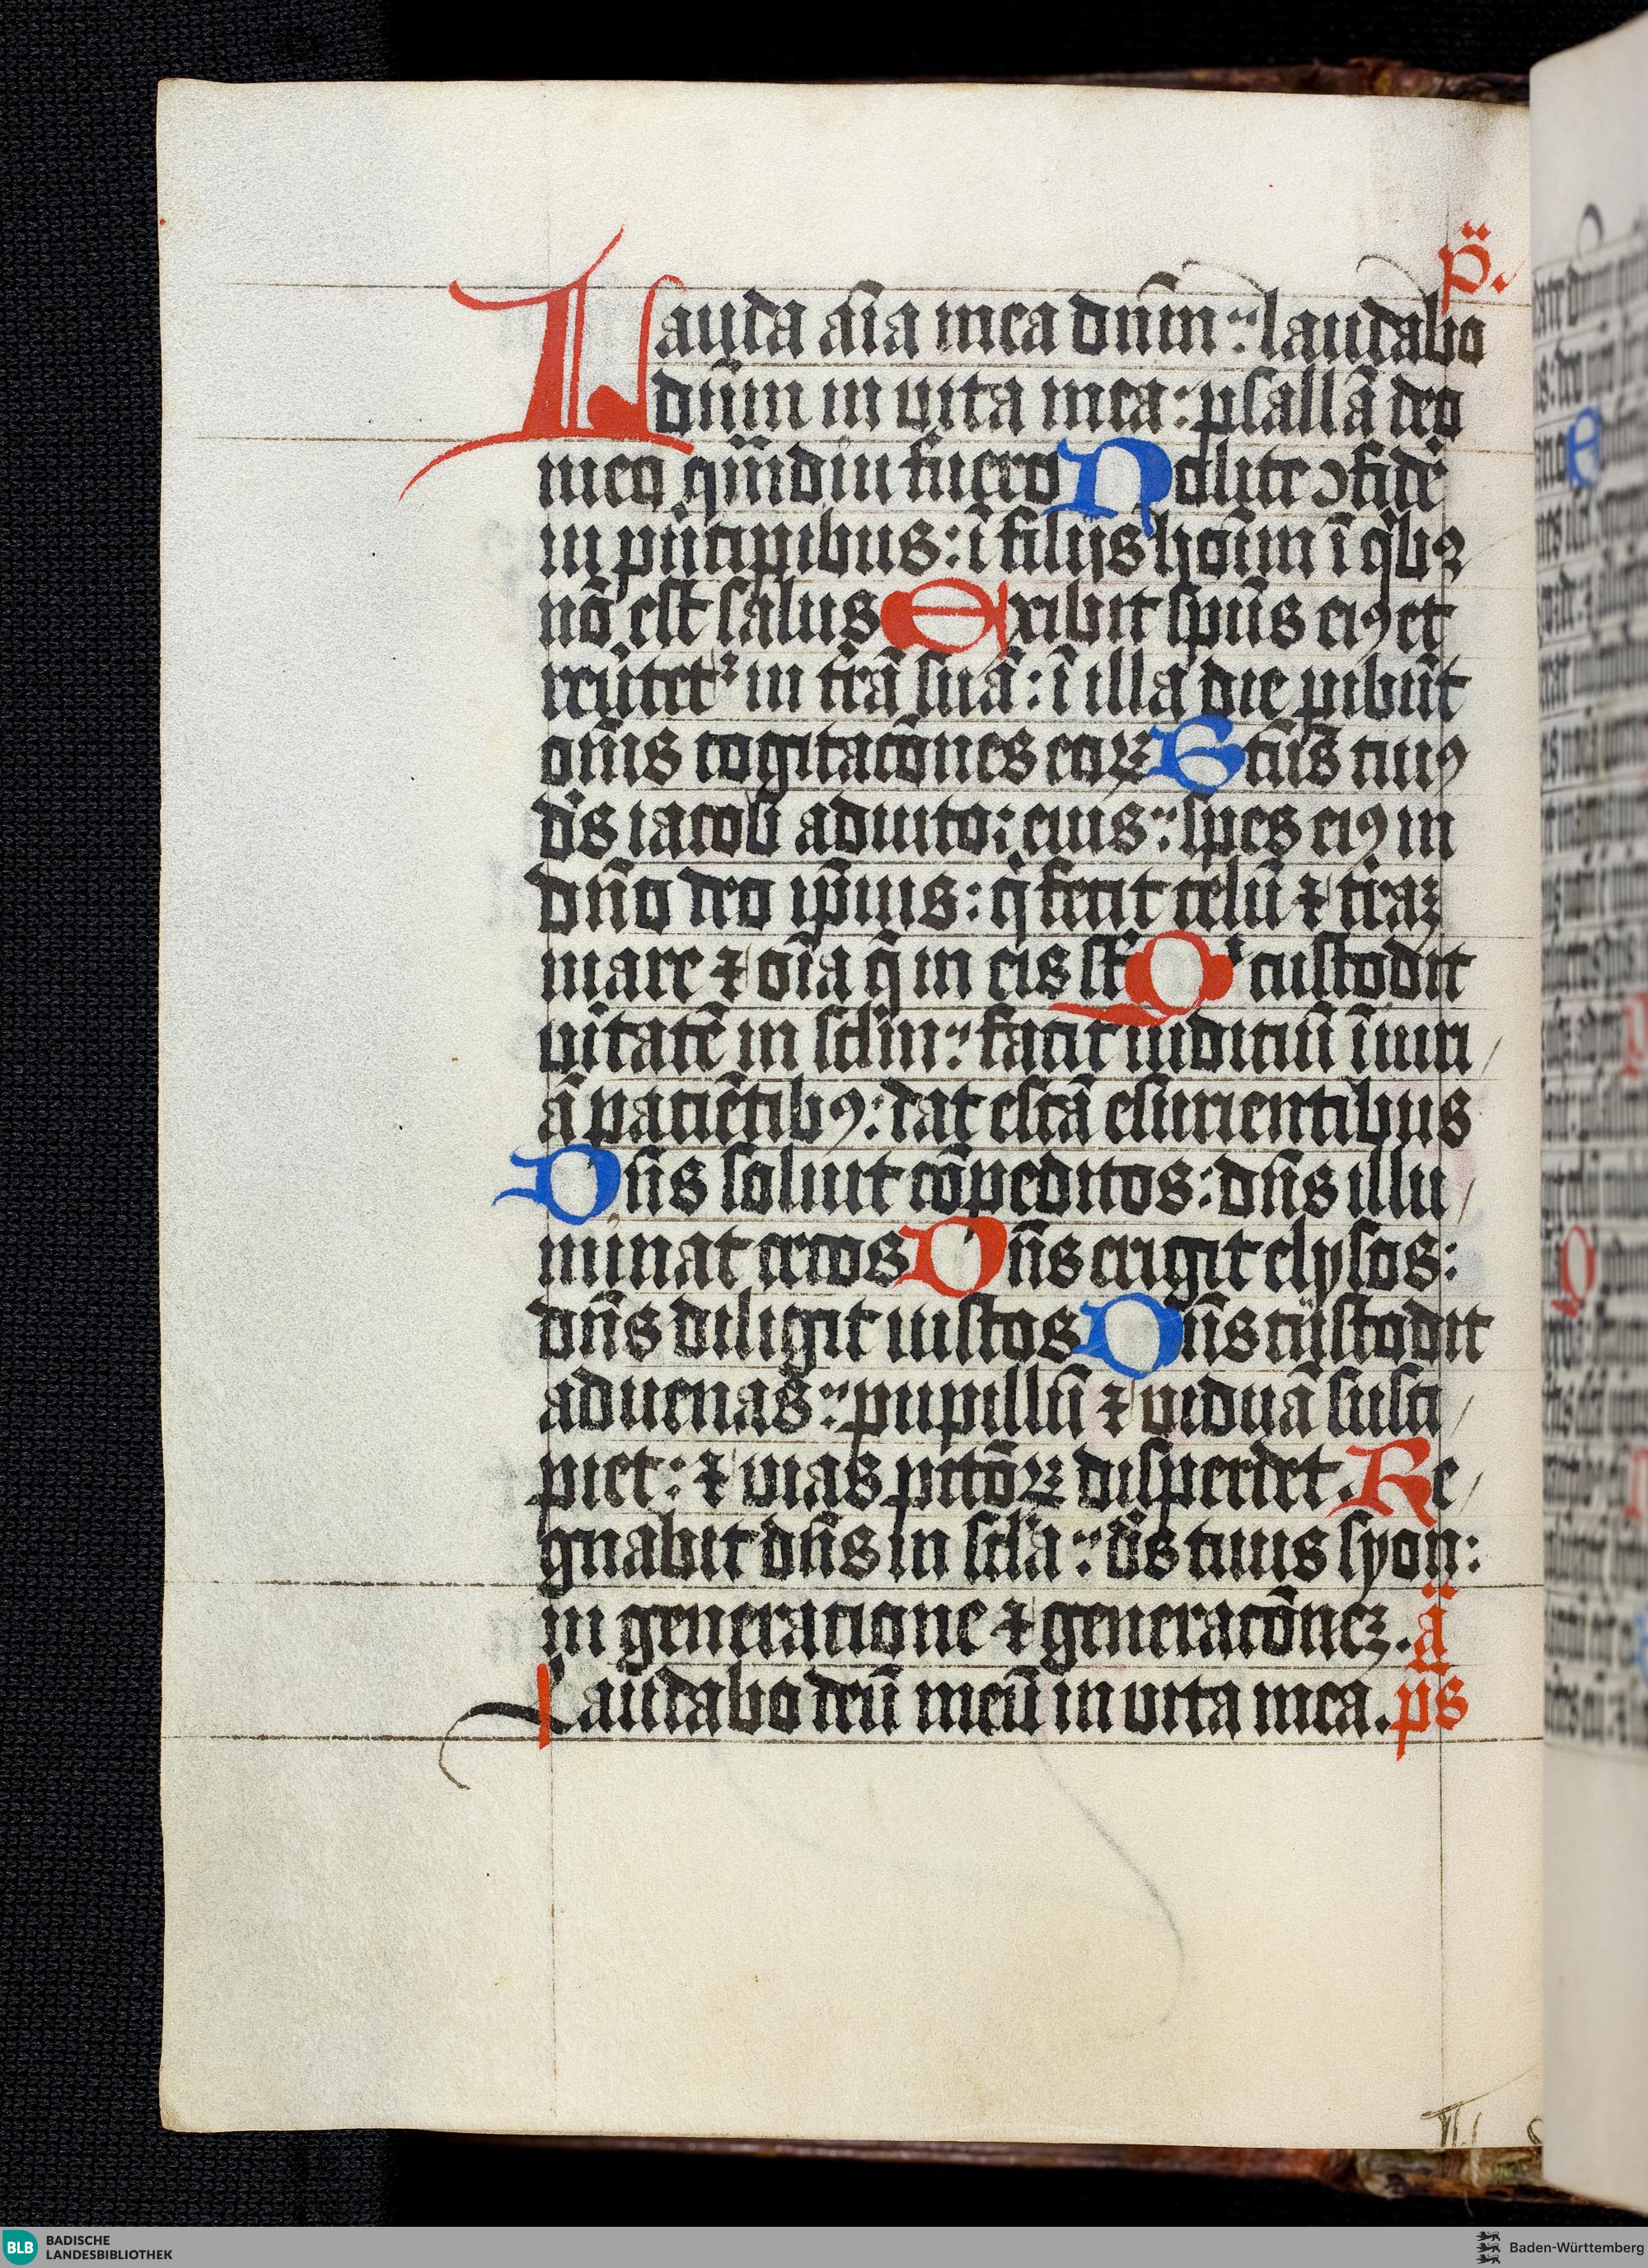 p̈.
Lauda aīa mea dnm̄: laudabo
dnm̄ in vita mea: psallā deo
meo qm̄diu fuero Nolite ↄfide
in pⁱncipibus: ī filijs hoīm ī qⁱbꝫ
nō est salus Exibit spūs eiꝰ et
reu̇tetᷣ in t̄rā suā: ī illa die pibūt
om̄s cogitacōnes eoꝝ Btūs cuiꝰ
ds̄ iacob adiutor eius: spes eiꝰ in
dn̄o deo ip̄ius: qⁱ fecit celū ⁊ t̄raꝫ
mare ⁊ oīa q̄ in eis st̄ Qⁱ custodit
vi̇tatē in sclm̄: facit iudiciū īiuri
ā paciētibꝰ: dat escā esurientibus
Dn̄s soluit cōpeditos: dn̄s illu
minat cecos Dn̄s erigit elysos:
dn̄s diligit iustos Dn̄s custodit
aduenas: pupillū ⁊ viduā susci
piet: ⁊ vias pctōꝝ disperdet. Re
gnabit dn̄s in scl̄a: ds̄ tuus syon:
in generatione ⁊ generacōneꝫ. ä
Laudabo deū meū in vita mea. ps
BLB BADISCHE
LANDESBIBLIOTHEK
Baden-Württemberg